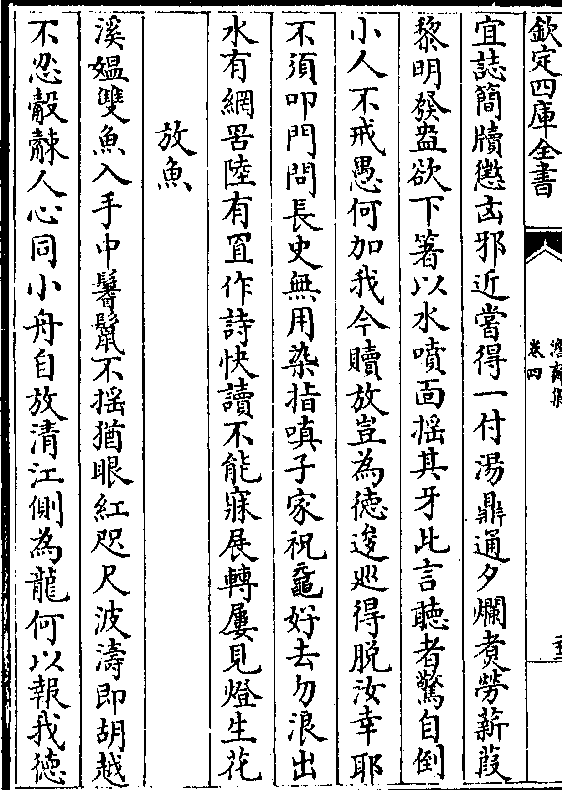 欽定四庫全書
卷四
宜誌簡牘懲凶邪近嘗得一付湯鼎通夕爛煑勞薪葭
黎明發盎欲下箸以水噴面揺其牙此言聴者驚自倒
小人不戒愚何加我今贖放豈為徳逡廵得脱汝幸耶
不須叩門問長史無用染指嗔子家祝龜好去勿浪出
水有網罟陸有罝作詩快讀不能寐展轉屢見燈生花
放魚
溪媪雙魚入手中鬐鬛不揺猶眼紅咫尺波濤即胡越
不忍觳觫人心同小舟自放清江側為龍何以報我徳